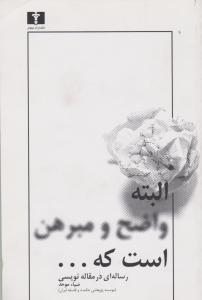 البته
واضح و مبرهن
است که ...
رساله‌ای در مقاله نویسی
ضیاء موحد
(موسسه پژوهشی حکمت و فلسفه ایران)